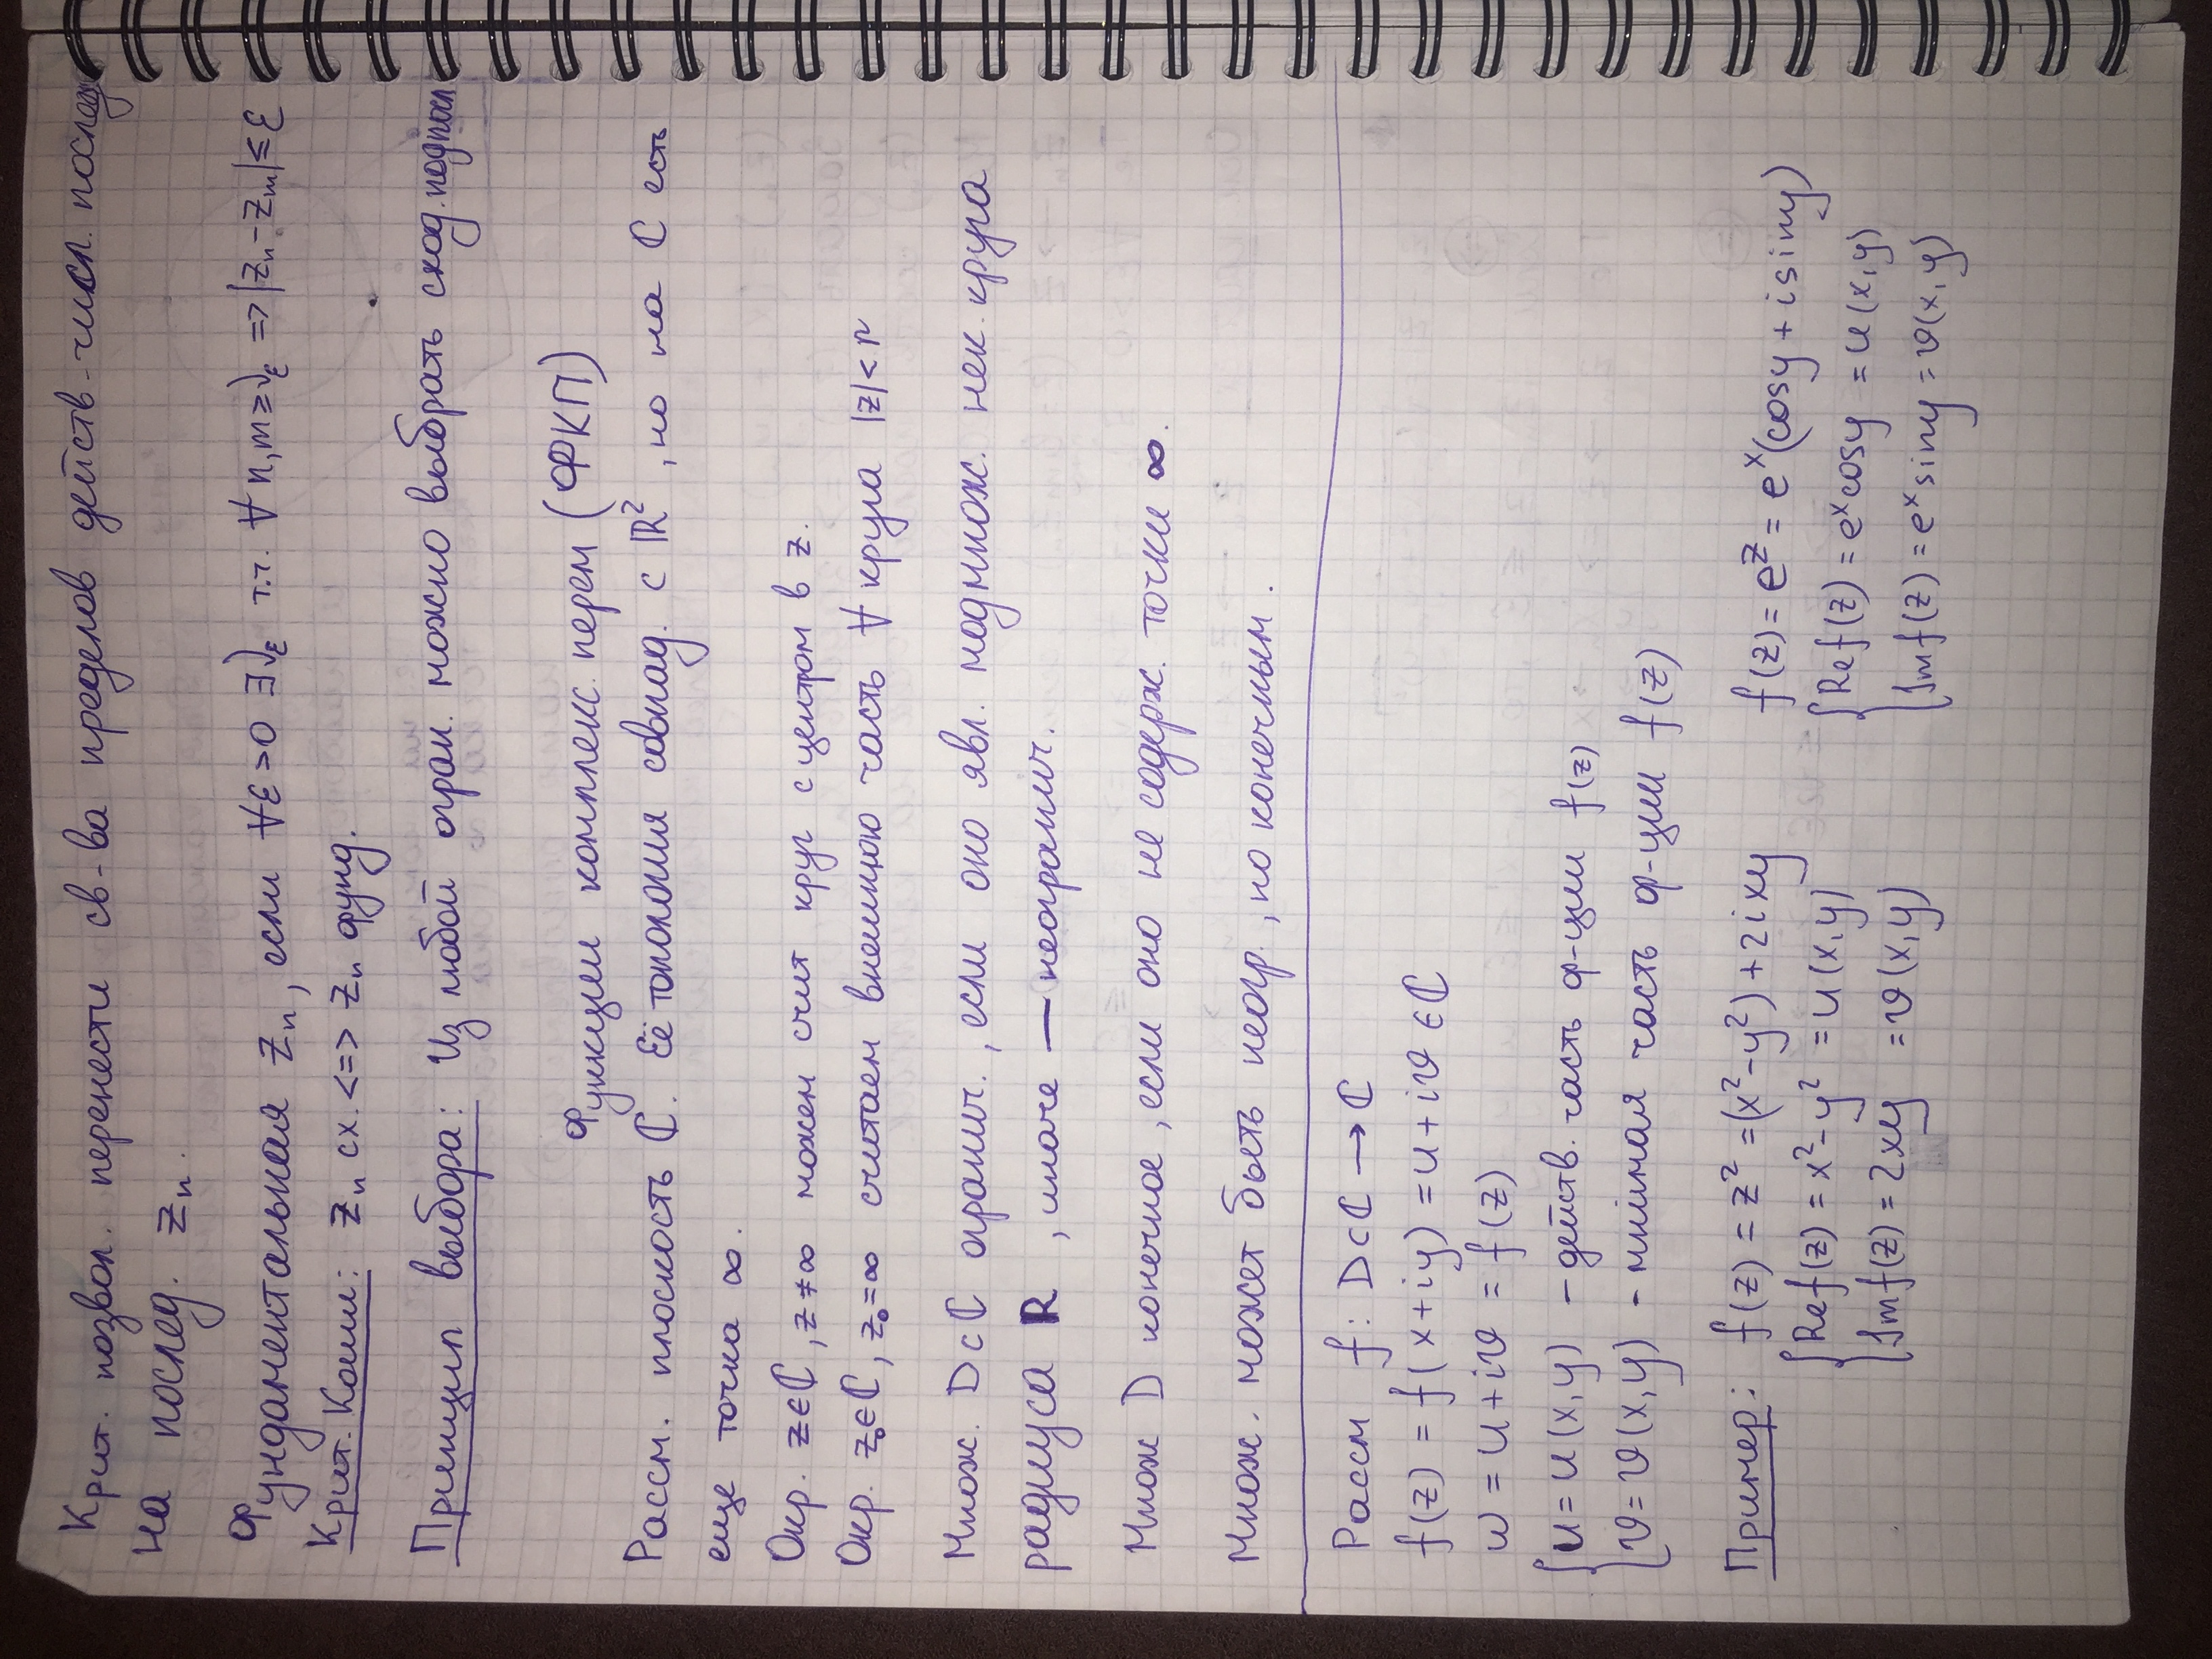 Крит. позвол. перенести св-ва пределов действ-числ. послед
на послед. zₙ.
Фундаментальная zₙ, если ∀ε>0 ∃ν_ε т.ч. ∀ n,m≥ν_ε => |zₙ-zₘ|≤ε
Крит. Коши: zₙ сх. <=> zₙ фунд.
Принцип выбора: Из любой огран. можно выбрать сход. подпосл
Функции комплекс. перем (ФКП)
Рассм. плоскость ℂ. Её топология совпад. с ℝ², но на ℂ есть
еще точка ∞.
Окр. z∈ℂ, z≠∞ можем счит круг с центром в z.
Окр. z₀∈ℂ, z₀=∞ считаем внешнюю часть ∀ круга |z|<r
Множ. D⊂ℂ огранич., если оно явл. подмнож. нек. круга
радиуса R, иначе — неогранич.
Множ D конечное, если оно не содерж. точки ∞.
Множ. может быть неогр., но конечным.
Рассм f: D⊂ℂ → ℂ
f(z) = f(x+iy) = u+iv ∈ℂ
w = u+iv = f(z)
{u = u(x,y) - действ. часть ф-ции f(z)
{v = v(x,y) - мнимая часть ф-ции f(z)
Пример: f(z) = z² = (x²-y²) + 2ixy
{Ref(z) = x²-y² = u(x,y)
{Imf(z) = 2xy = v(x,y)
f(z) = e^z = e^x(cosy + isiny)
{Ref(z) = e^x cosy = u(x,y)
{Imf(z) = e^x siny = v(x,y)